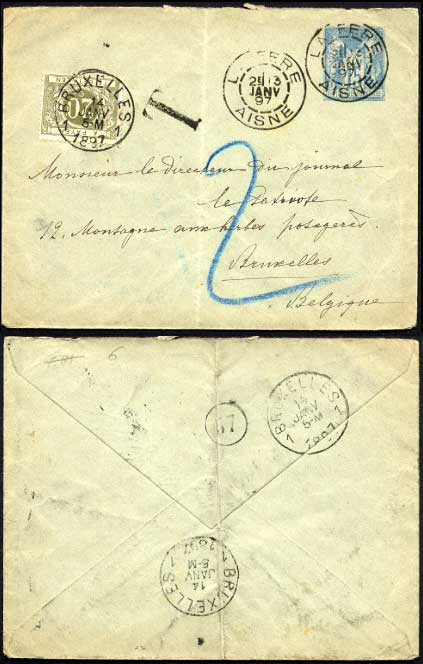 BRUXELLES
14
JANV
5-M
1897
1 1
20
T
LA FERE
2E 13
JANV
97
AISNE
LA FERE
JANV
97
AISNE
Monsieur le directeur du journal
le Patriote
12, Montagne aux herbes potagères.
Bruxelles
Belgique
2
6
37
BRUXELLES
14
JANV
5-M
1897
1 1
BRUXELLES
14
JANV
5-M
1897